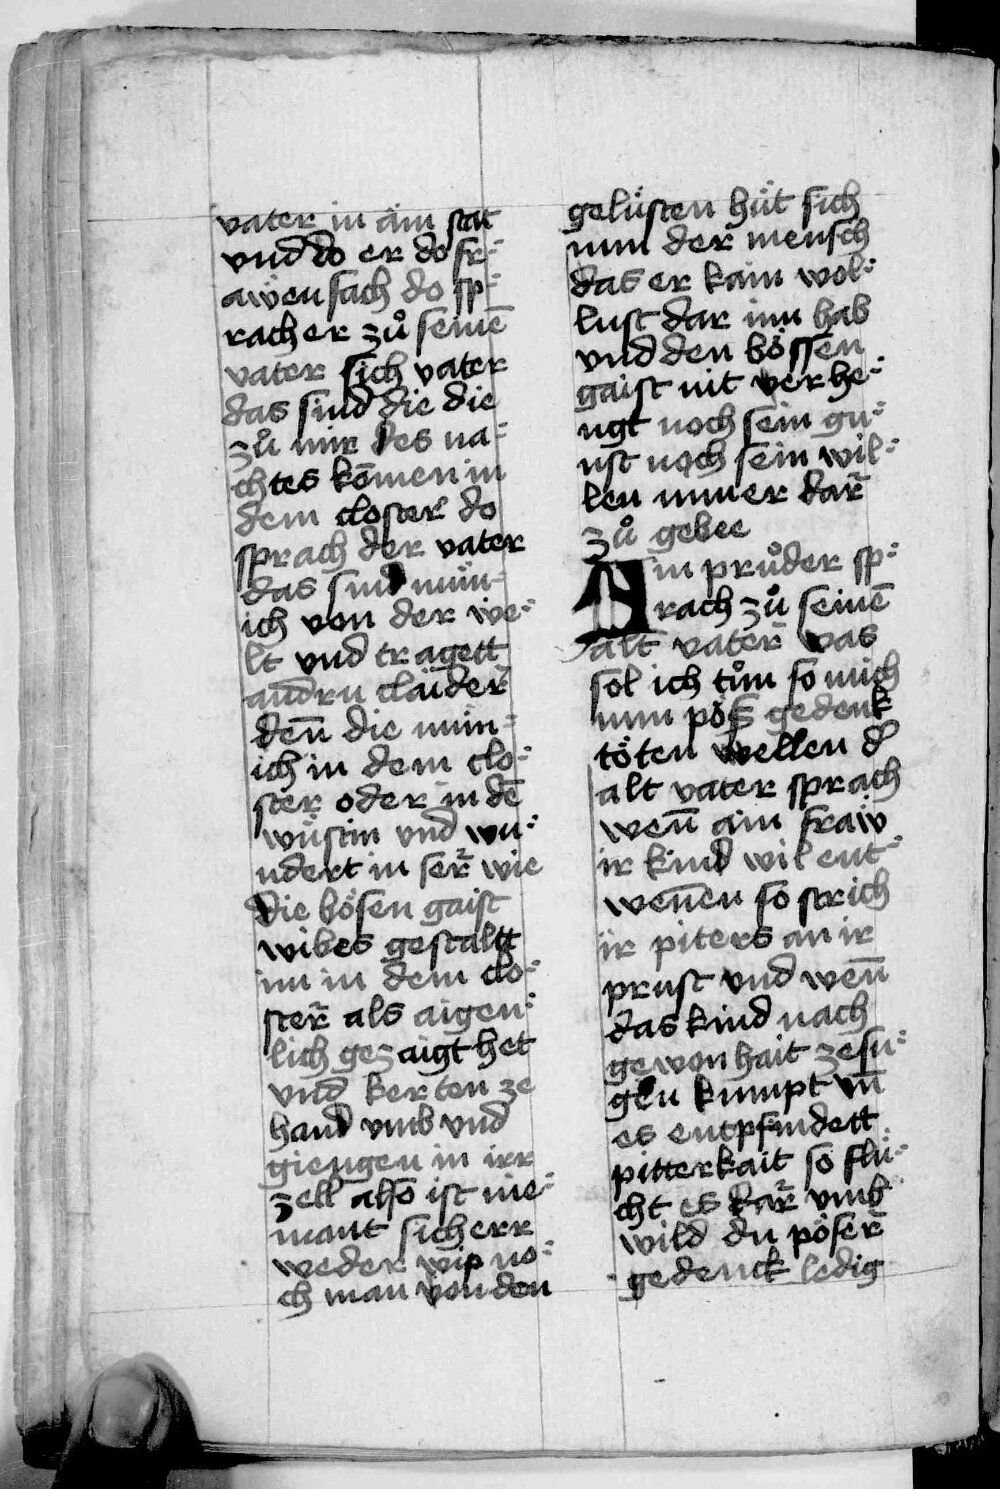 vater in ain stat
vnd do er do fr⸗
awen sach do sp⸗
rach er zů seinē
vater sich vater
das sind die die
zů mir des na⸗
chtes kōmen in
dem closter do
sprach der vater
das sind mün⸗
ich von der we⸗
lt vnd tragett
andrn claider
deñ die mün⸗
ich in dem clo⸗
ster oder in dē
wüstin vnd wu⸗
ndert in ser wie
die bösen gaist
wibes gestaltt
im in dem clo⸗
ster als aigen⸗
lich gezaigt het
vnd kerten ze
hand vmb vnd
giengen in irr
zell also ist nie⸗
mant sicherr
weder wip no⸗
ch man von den
gelüsten hüt sich
nun der mensch
das er kain wol⸗
lust dar inn hab
vnd den bössen
gaist nit verhe⸗
ngt noch sein gu⸗
nst noch sein wil⸗
len nimer dar
zů gebee
Ain průder sp⸗
rach zů seinē
alt vater was
sol ich tůn so mich
nun pöß gedenk
töten wellen d̕
alt vater sprach
weñ ain fraw
ir kind wil ent⸗
weñen so strich
ir piters an ir
prust vnd weñ
das kind nach
gewonhait zesu⸗
gen kumpt vñ
es entpfindett
pitterkait so flü⸗
cht es kar vmb
wild du pöser
gedenck ledig